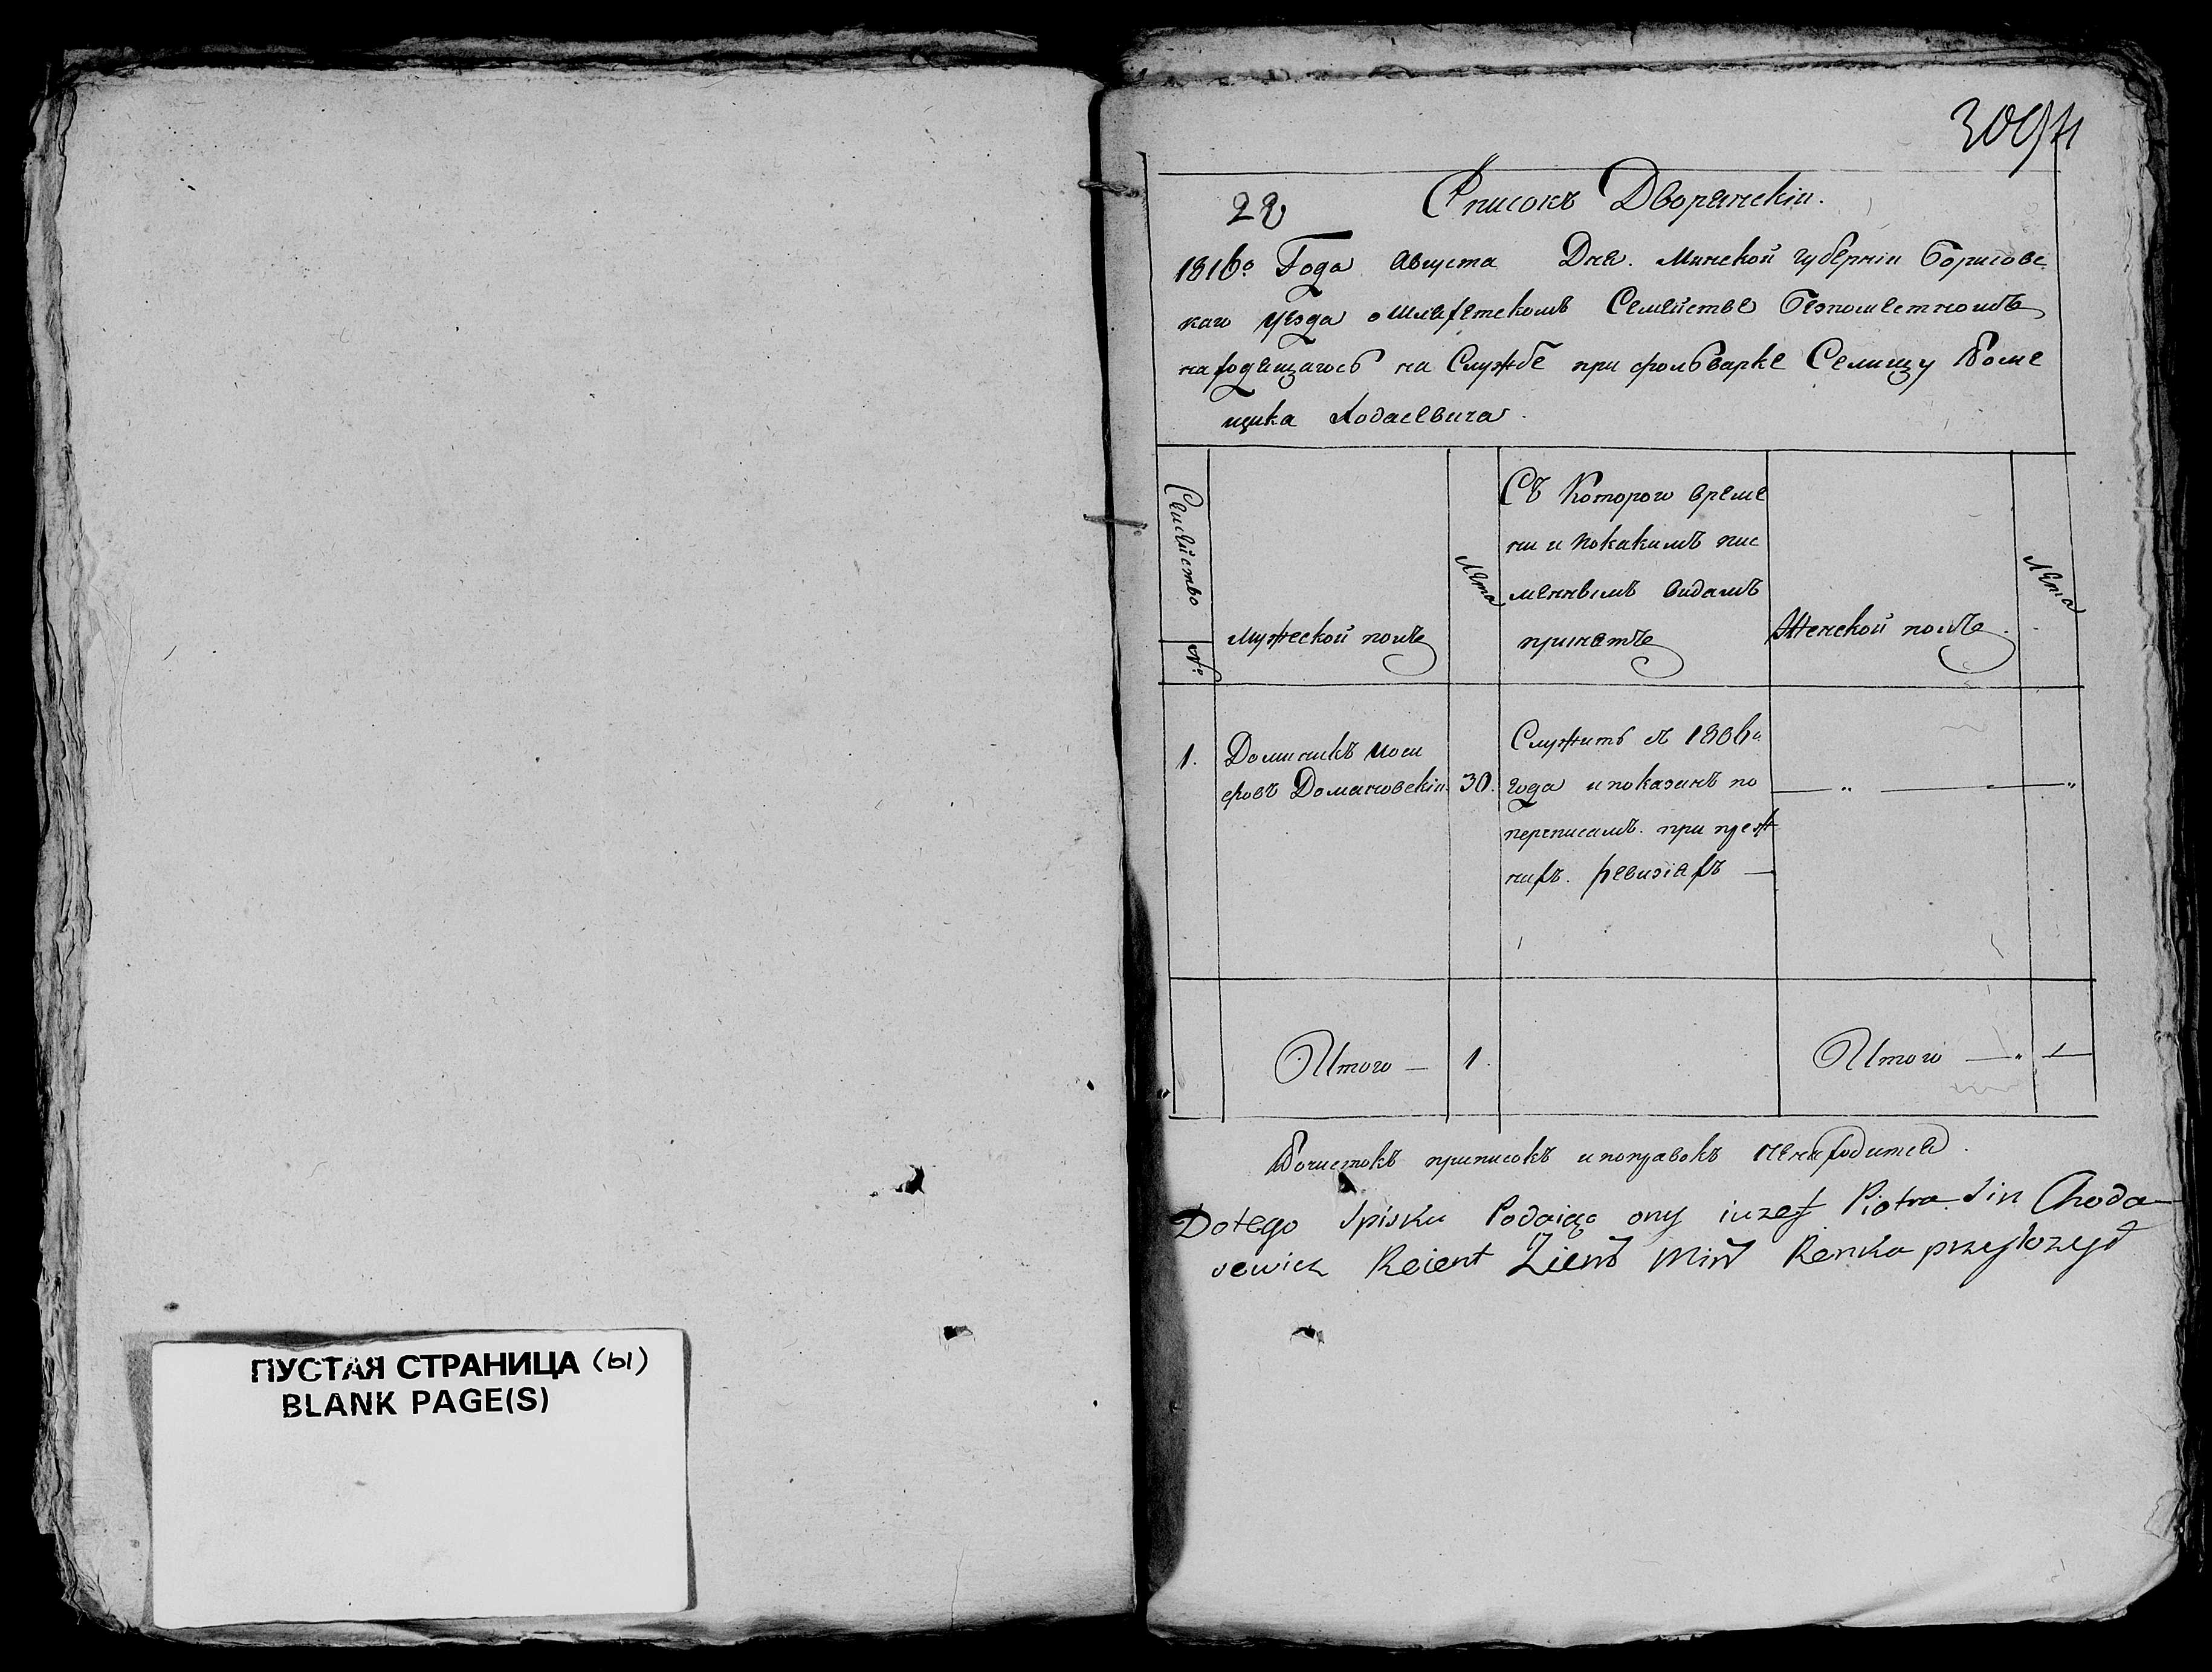 ПУСТАЯ СТРАНИЦА (ы)
BLANK PAGE(S)
22
Списокъ Дворянскіи.
1816го Года Августа Дня. Минской губерніи Борисовс
каго уезда о шляхетскомъ Семействе безпоместномъ
находящагось на Службе при фольварке Селищу Поме
щика Ходасевича.
Семейство
№
Мужеской полъ
Лета
Съ Которого време
ни и покакимъ пис
меннымъ видамъ
принятъ
Женской полъ.
Лета
1.
Доминикъ Иоси
фовъ Домановскіи.
30.
Служитъ съ 1806го
года и показанъ по
переписамъ. при преж
нихъ. ревизіяхъ —
Итого — 1.
Итого —
Почистокъ приписокъ и поправокъ ненаходится.
Dotego Spisku Podaiąc ony iuzef Piotra Sin Choda-
sewicz Reient Ziem Min Renka przylozyl